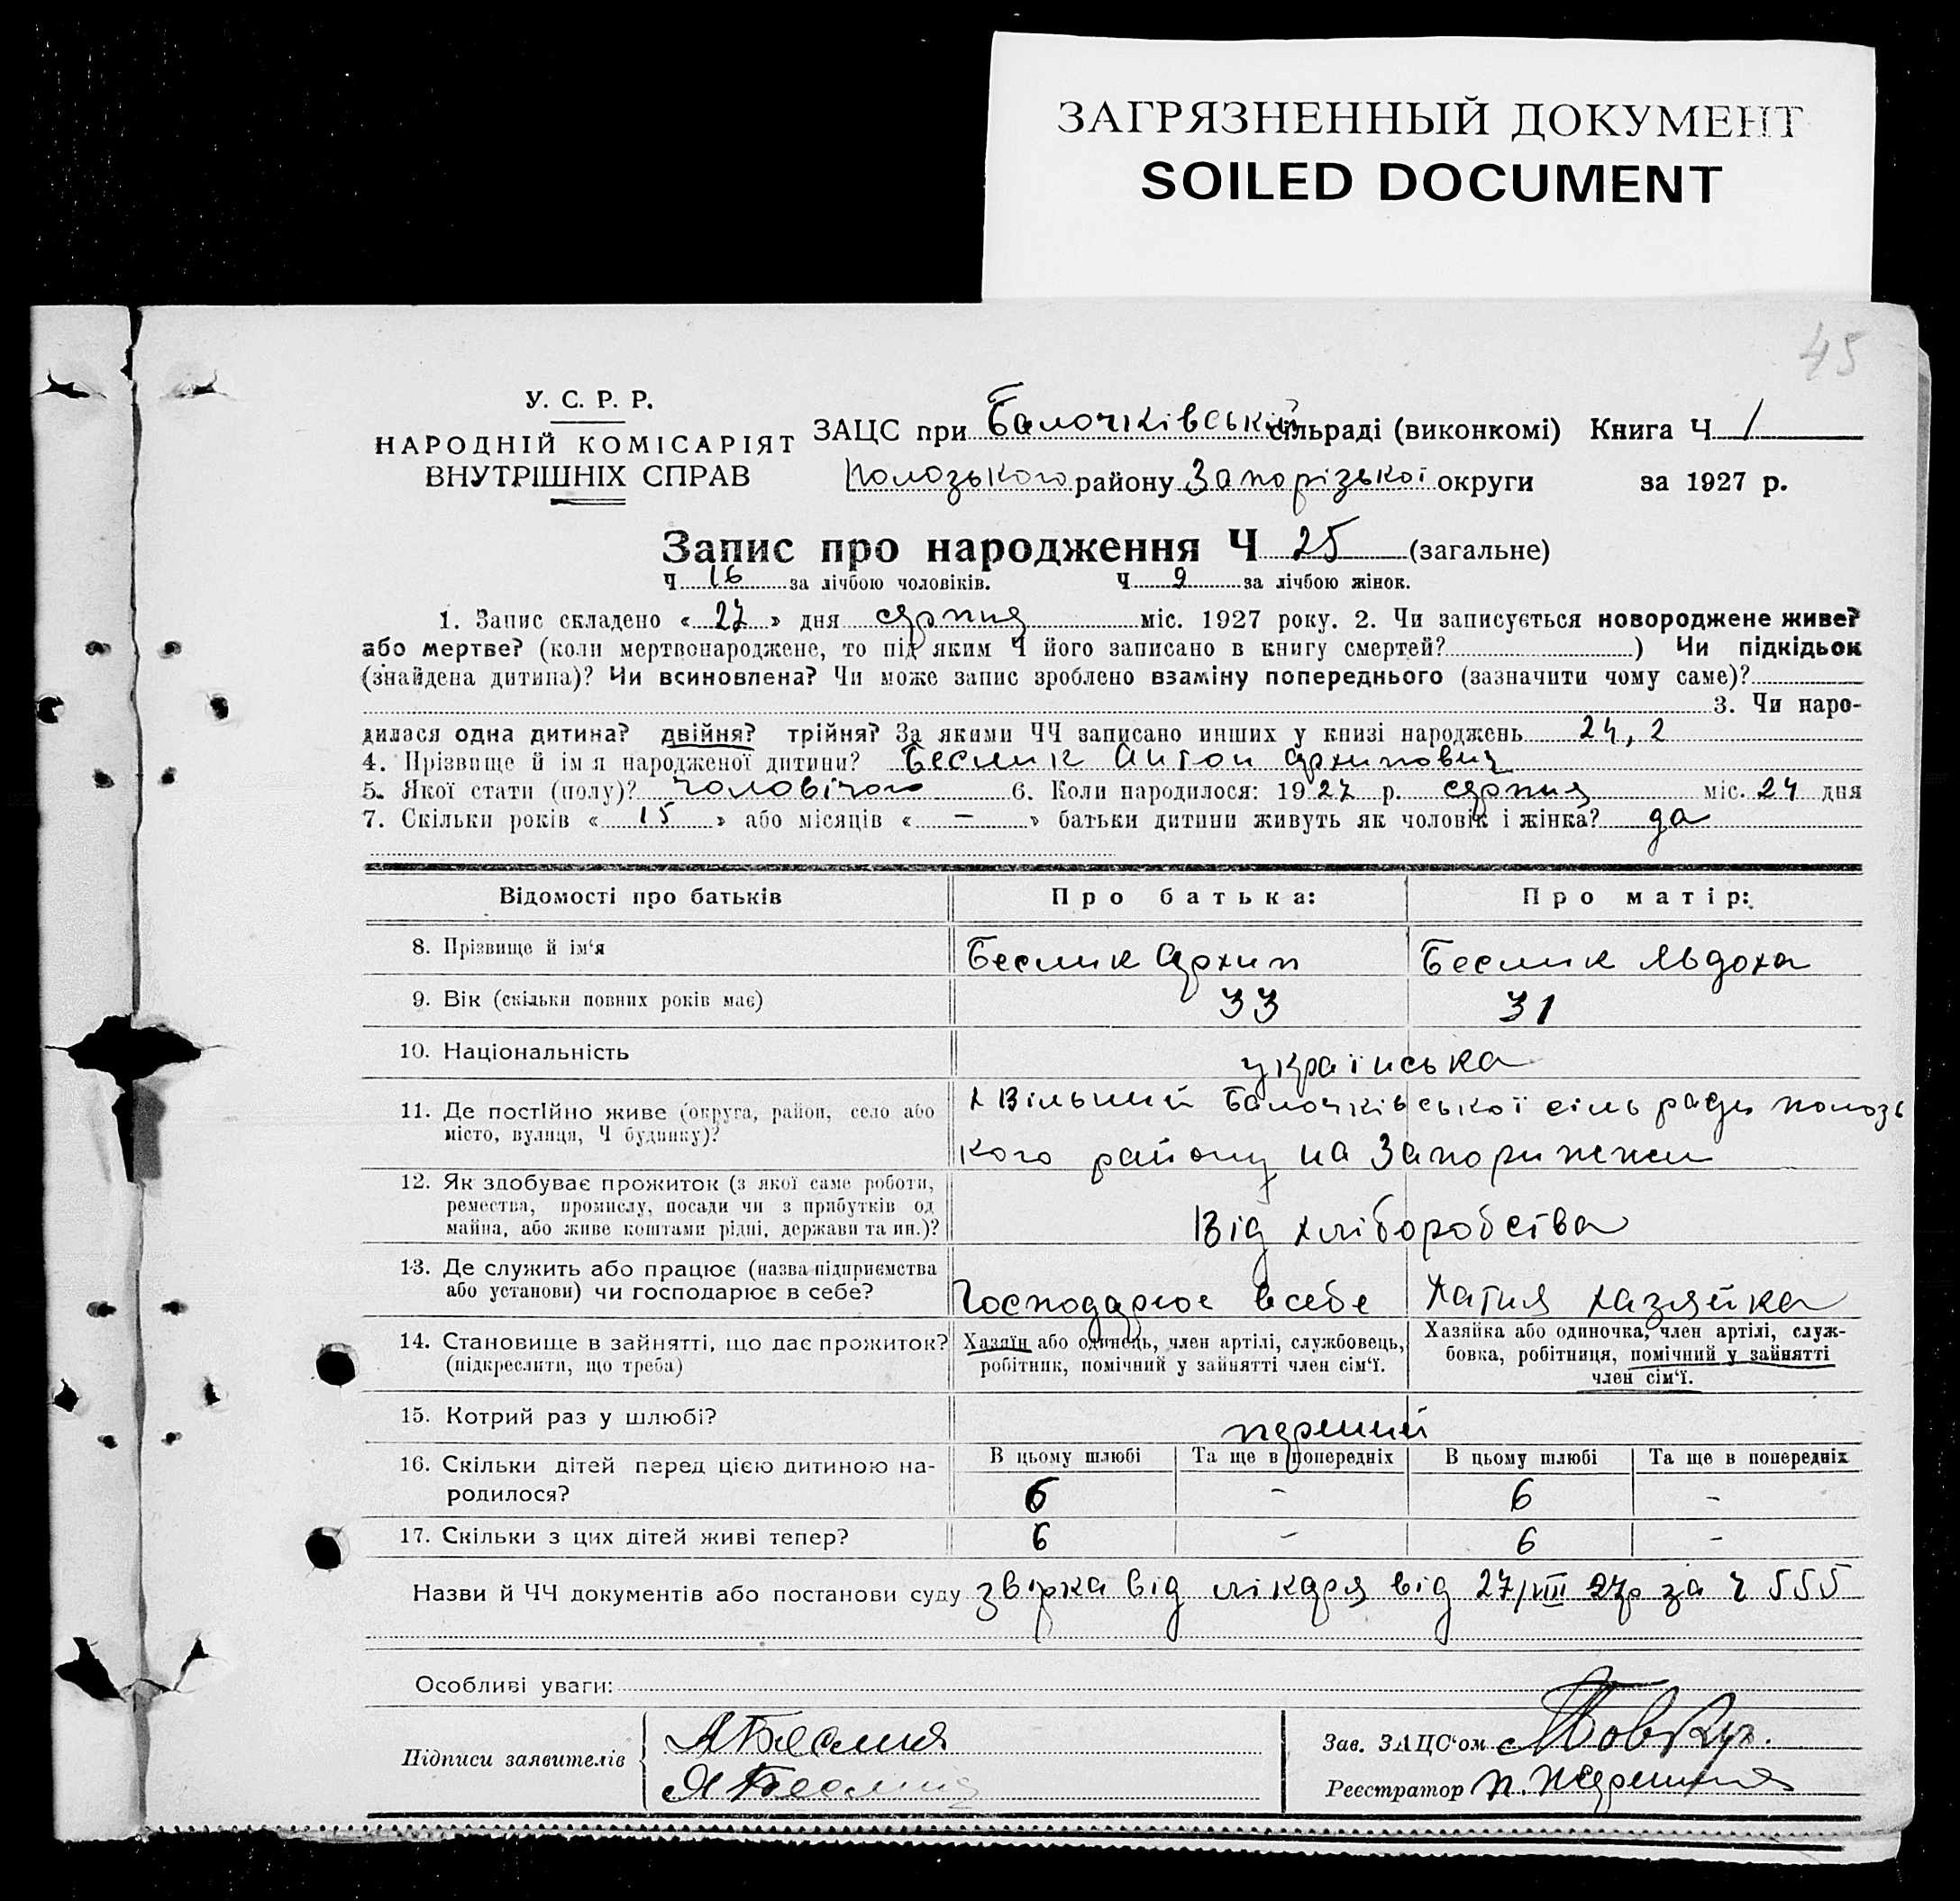 ЗАГРЯЗНЕННЫЙ ДОКУМЕНТ
SOILED DOCUMENT
45
У. С. Р. Р.
НАРОДНІЙ КОМІСАРІЯТ
ВНУТРІШНІХ СПРАВ
ЗАЦС при Балочківській сільраді (виконкомі) Книга Ч 1
Полозького району Запорізької округи за 1927 р.
Запис про народження Ч 25 (загальне)
Ч 16 за лічбою чоловіків. Ч 9 за лічбою жінок.
1. Запис складено « 27 » дня серпня міс. 1927 року. 2. Чи записується новороджене живе?
або мертве? (коли мертвонароджене, то під яким Ч його записано в книгу смертей? ) Чи підкідьок
(знайдена дитина)? Чи всиновлена? Чи може запис зроблено взаміну попереднього (зазначити чому саме)?
3. Чи наро-
дилася одна дитина? двійня? трійня? За якими ЧЧ записано инших у книзі народжень 24, 2
4. Прізвище й ім'я народженої дитини? Беслик Антон Архипович
5. Якої стати (полу)? чоловічого 6. Коли народилося: 1927 р. серпня міс. 24 дня
7. Скільки років « 15 » або місяців « — » батьки дитини живуть як чоловік і жінка? да
Відомості про батьків Про батька: Про матір:
8. Прізвище й ім‘я Беслик Архип Беслик Явдоха
9. Вік (скільки повних років має) 33 31
10. Національність українська
11. Де постійно живе (округа, район, село або місто, вулиця, Ч будинку)? х Вільний Балочківської сільради Полозь
кого району на Запорижжи
12. Як здобуває прожиток (з якої саме роботи,
ремества, промислу, посади чи з прибутків од
майна, або живе коштами рідні, держави та ин.)? Від хліборобства
13. Де служить або працює (назва підприємства
або установи) чи господарює в себе? Господарює всебе Хатня хазяйка
14. Становище в зайнятті, що дає прожиток?
(підкреслити, що треба)
Хазяїн або одинець, член артілі, службовець,
робітник, помічний у зайнятті член сім‘ї.
Хазяйка або одиночка, член артілі, служ-
бовка, робітниця, помічний у зайнятті
член сім‘ї.
15. Котрий раз у шлюбі? перший
В цьому шлюбі Та ще в попередніх В цьому шлюбі Та ще в попередніх
16. Скільки дітей перед цією дитиною на-
родилося? 6 - 6 -
17. Скільки з цих дітей живі тепер? 6 - 6 -
Назви й ЧЧ документів або постанови суду звірка від лікаря від 27/VIII 27р за ч 555
Особливі уваги:
Підписи заявителів
Зав. ЗАЦС‘ом
Реєстратор